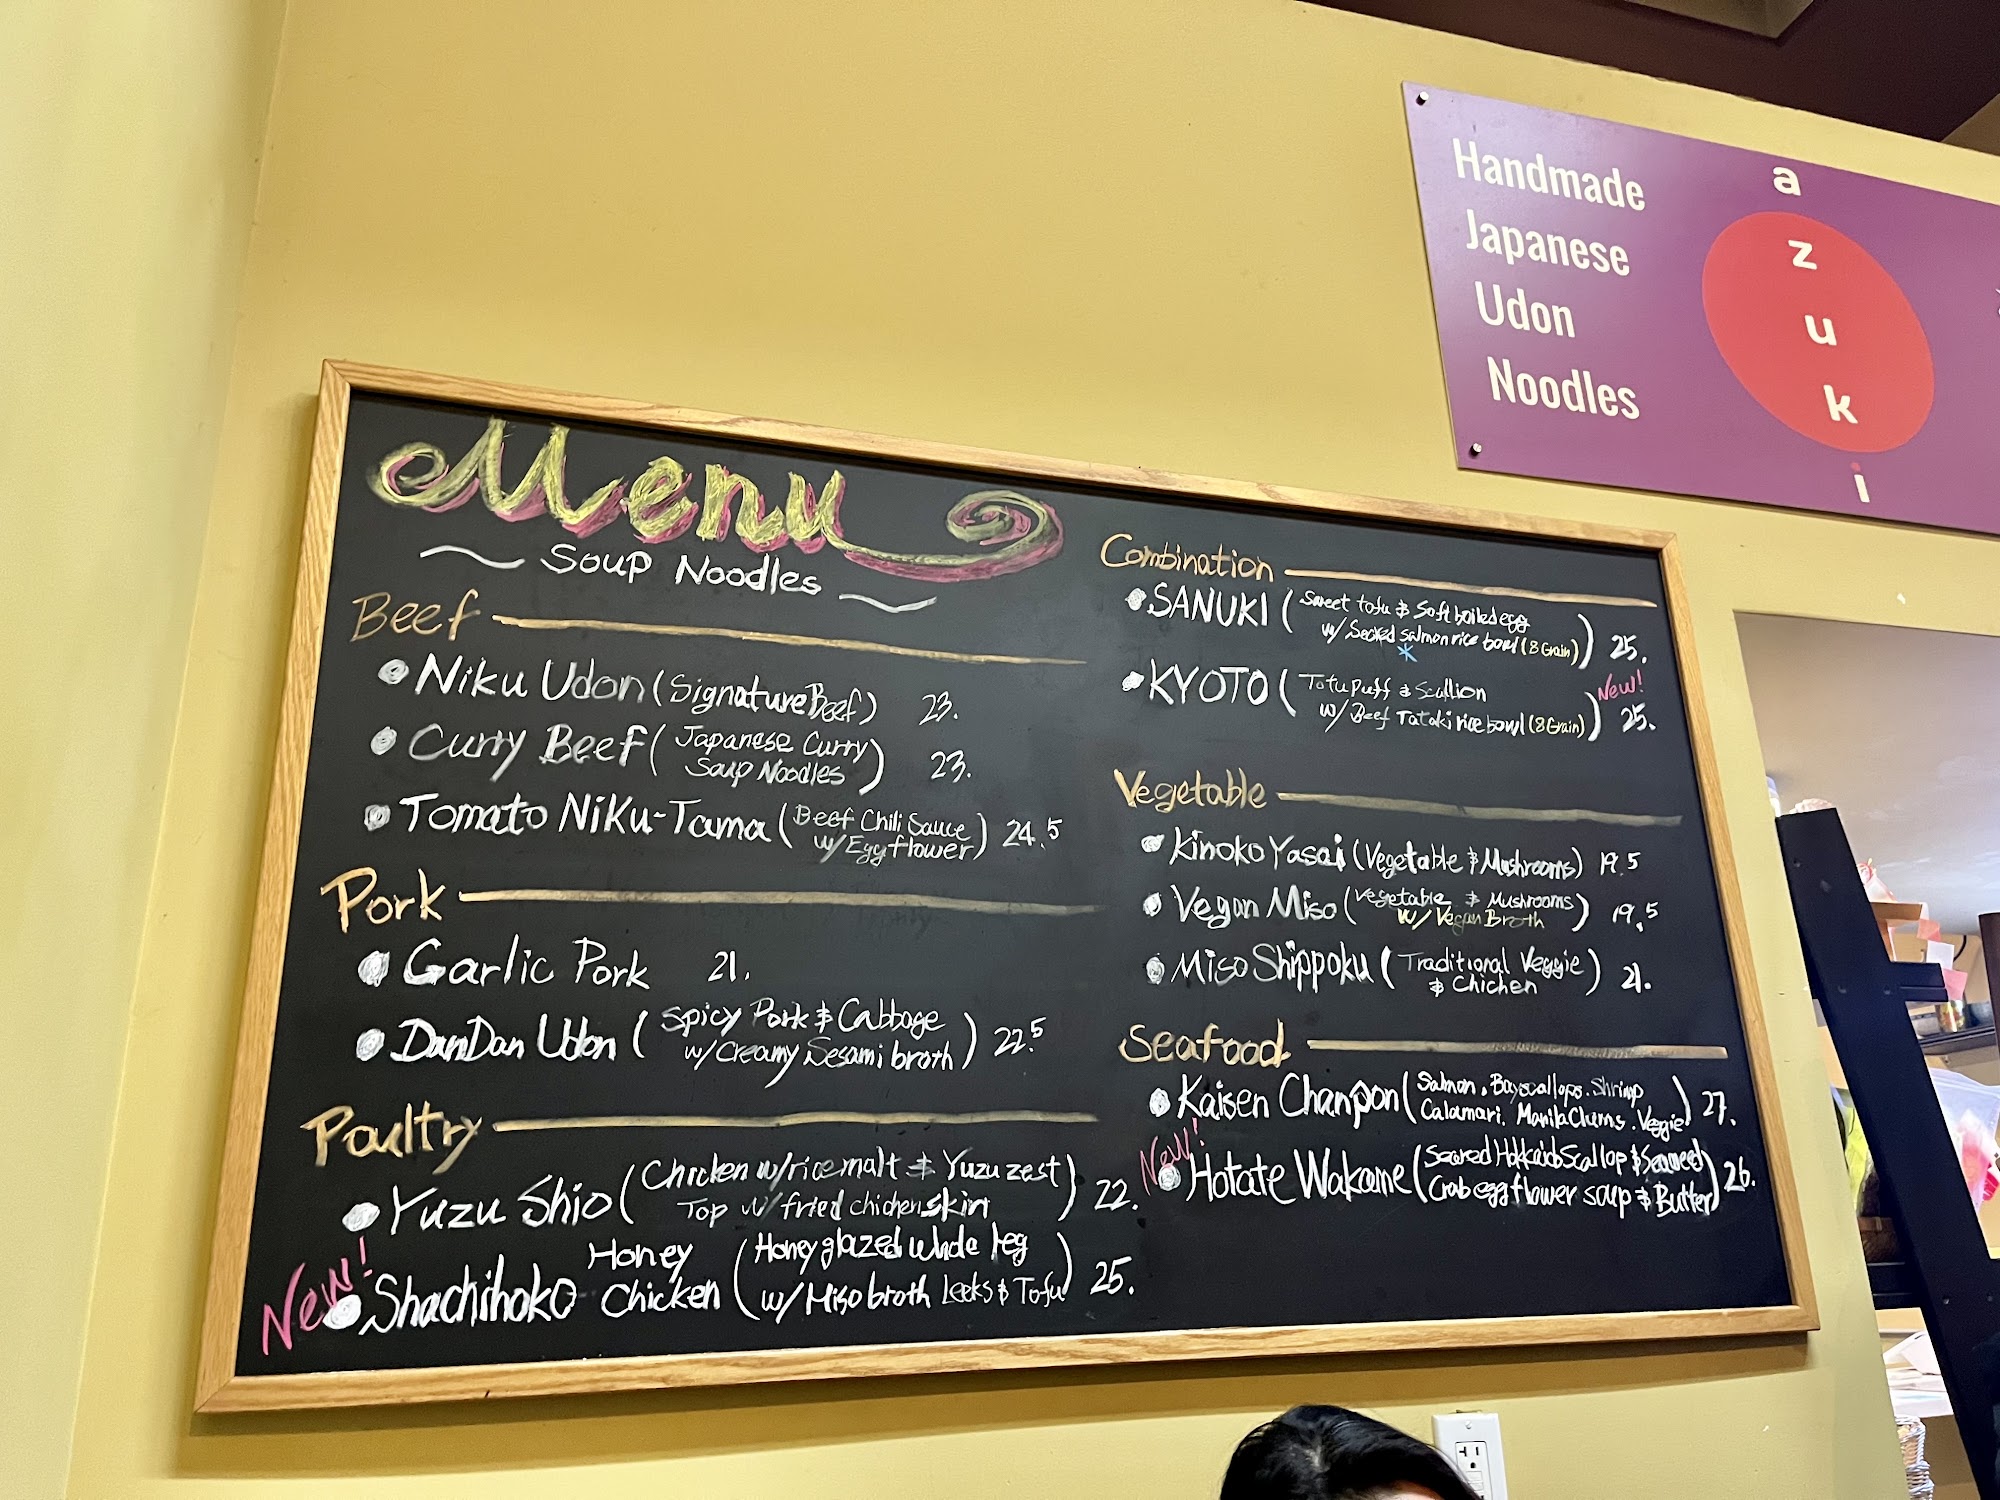 Handmade
Japanese
Udon
Noodles
a
z
u
k
i
Menu
~ Soup Noodles ~
Beef
Niku Udon (Signature Beef) 23.
Curry Beef (Japanese Curry
Soup Noodles) 23.
Tomato Niku-Tama (Beef Chili Sauce
w/ Egg flower) 24.5
Pork
Garlic Pork 21.
DanDan Udon (Spicy Pork & Cabbage
w/ Creamy Sesami broth) 22.5
Poultry
Yuzu Shio (Chicken w/ rice malt & Yuzu zest
Top w/ fried chichen skin) 22.
New! Shachihoko Honey
Chicken (Honey glazed whole leg
w/ Miso broth Leeks & Tofu) 25.
Combination
SANUKI (Sweet tofu & Soft boiled egg
w/ Seared salmon rice bowl (8 Grain)) 25.
*
KYOTO (Tofu puff & Scallion
w/ Beef Tataki rice bowl (8 Grain)) New! 25.
Vegetable
Kinoko Yasai (Vegetable & Mushrooms) 19.5
Vegan Miso (Vegetable & Mushrooms
w/ Vegan Broth) 19.5
Miso Shippoku (Traditional Veggie
& Chichen) 21.
Seafood
Kaisen Chanpon (Salmon, Bayscallops, Shrimp
Calamari, Manila Clams, Veggie) 27.
New! Hotate Wakame (Seared Hokkaido Scallop & Seaweed
Crab egg flower soup & Butter) 26.